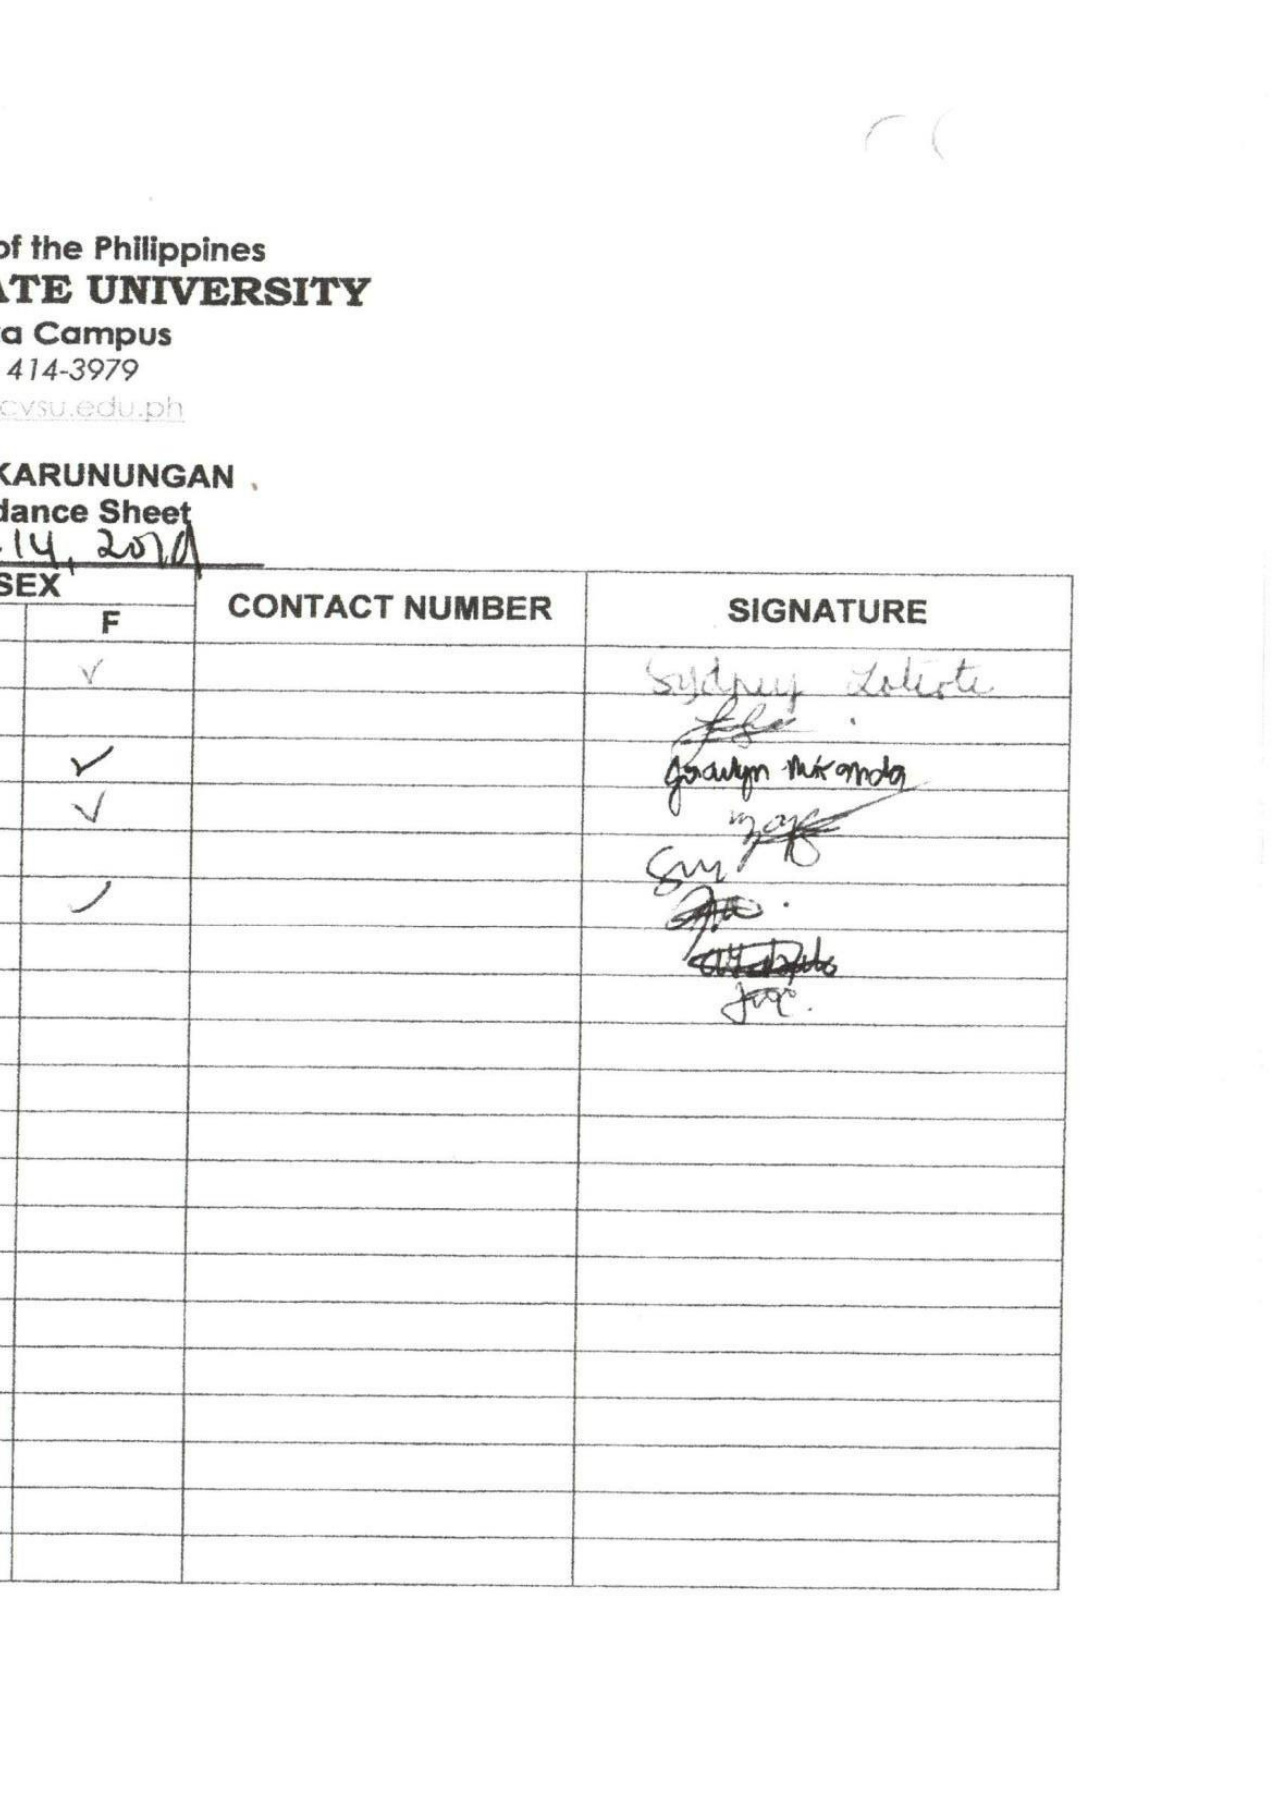 of the Philippines
ATE UNIVERSITY
a Campus
414-3979
cvsu.edu.ph
KARUNUNGAN
dance Sheet
14, 2019
SEX
F
CONTACT NUMBER
SIGNATURE
✓
Sydney
✓
Miranda
✓
✓